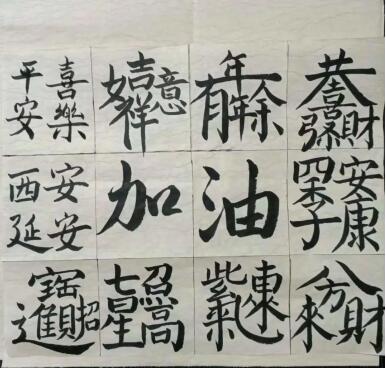 平安喜樂
吉祥如意
年年有余
恭喜發財
西安延安
加
油
四季安康
招財進寶
七星高照
紫氣東來
八方來財